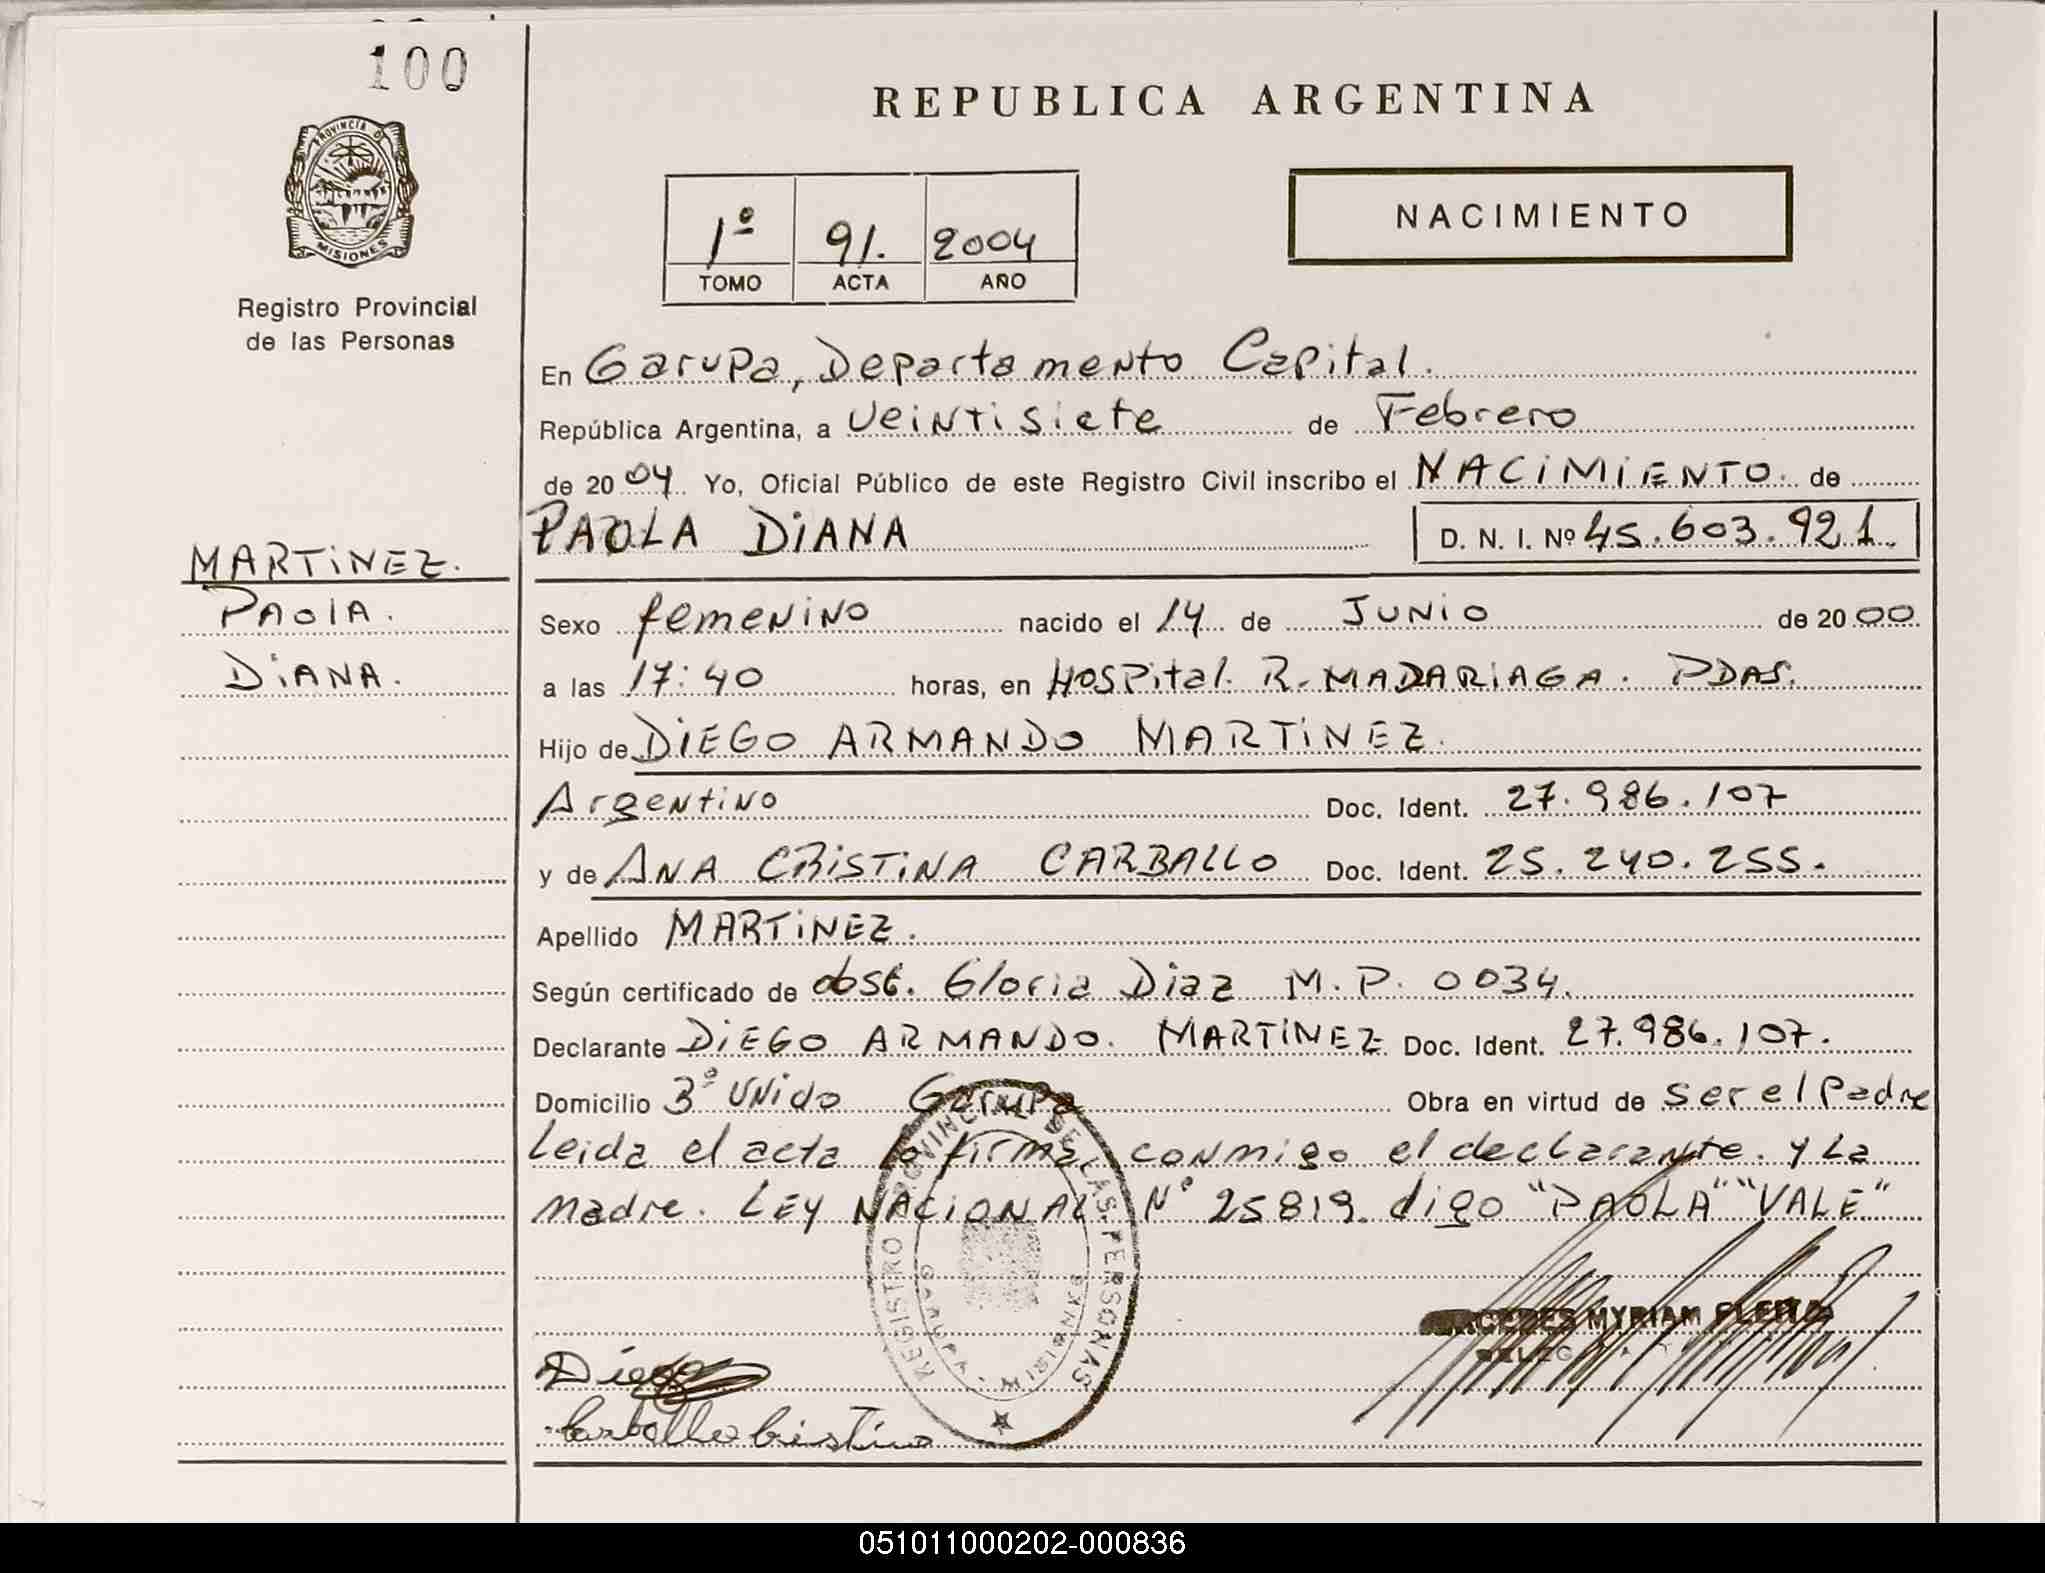 100
REPUBLICA ARGENTINA
PROVINCIA DE
MISIONES
1º 91. 2004
TOMO ACTA AÑO
NACIMIENTO
Registro Provincial
de las Personas
En Garupa, Departamento Capital.
República Argentina, a veintisiete de Febrero
de 2004 Yo, Oficial Público de este Registro Civil inscribo el NACIMIENTO. de
PAOLA DIANA D. N. I. Nº 45.603.921.
MARTINEZ.
PAOLA.
DIANA.
Sexo femenino nacido el 14 de JUNIO de 2000
a las 17:40 horas, en HOSPital R. MADARIAGA. PDAS.
Hijo de DIEGO ARMANDO MARTINEZ.
Argentino Doc. Ident. 27.986.107
y de ANA CRISTINA CARBALLO Doc. Ident. 25.240.255.
Apellido MARTINEZ.
Según certificado de obst. Gloria Diaz M.P. 0034.
Declarante DIEGO ARMANDO. MARTINEZ Doc. Ident. 27.986.107.
Domicilio 3º UNido Garupa Obra en virtud de ser el Padre
Leida el acta la firma conmigo el declarante. y La
madre. LEY NACIONAL Nº 25819. digo "PAOLA" "VALE"
REGISTRO PROVINCIAL DE LAS PERSONAS
GARUPA - MISIONES
MYRIAM
Diego
Carballo Cristina
051011000202-000836